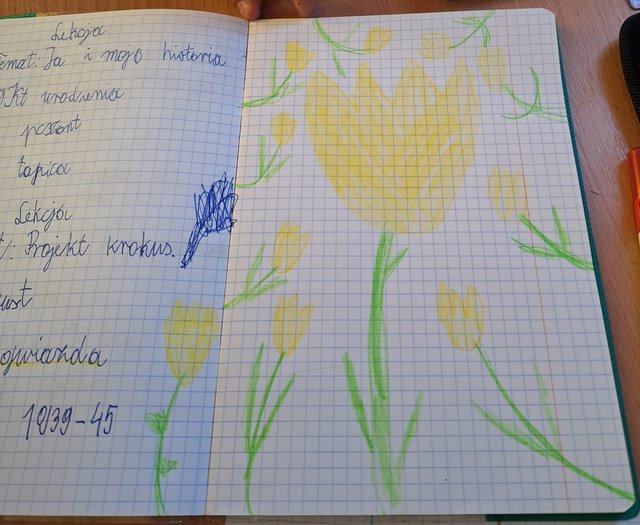 Lekcja
Temat: Ja i moja historia
Akt urodzenia
paszport
tapica
Lekcja
t: Projekt krokus.
gwiazda
1939-45